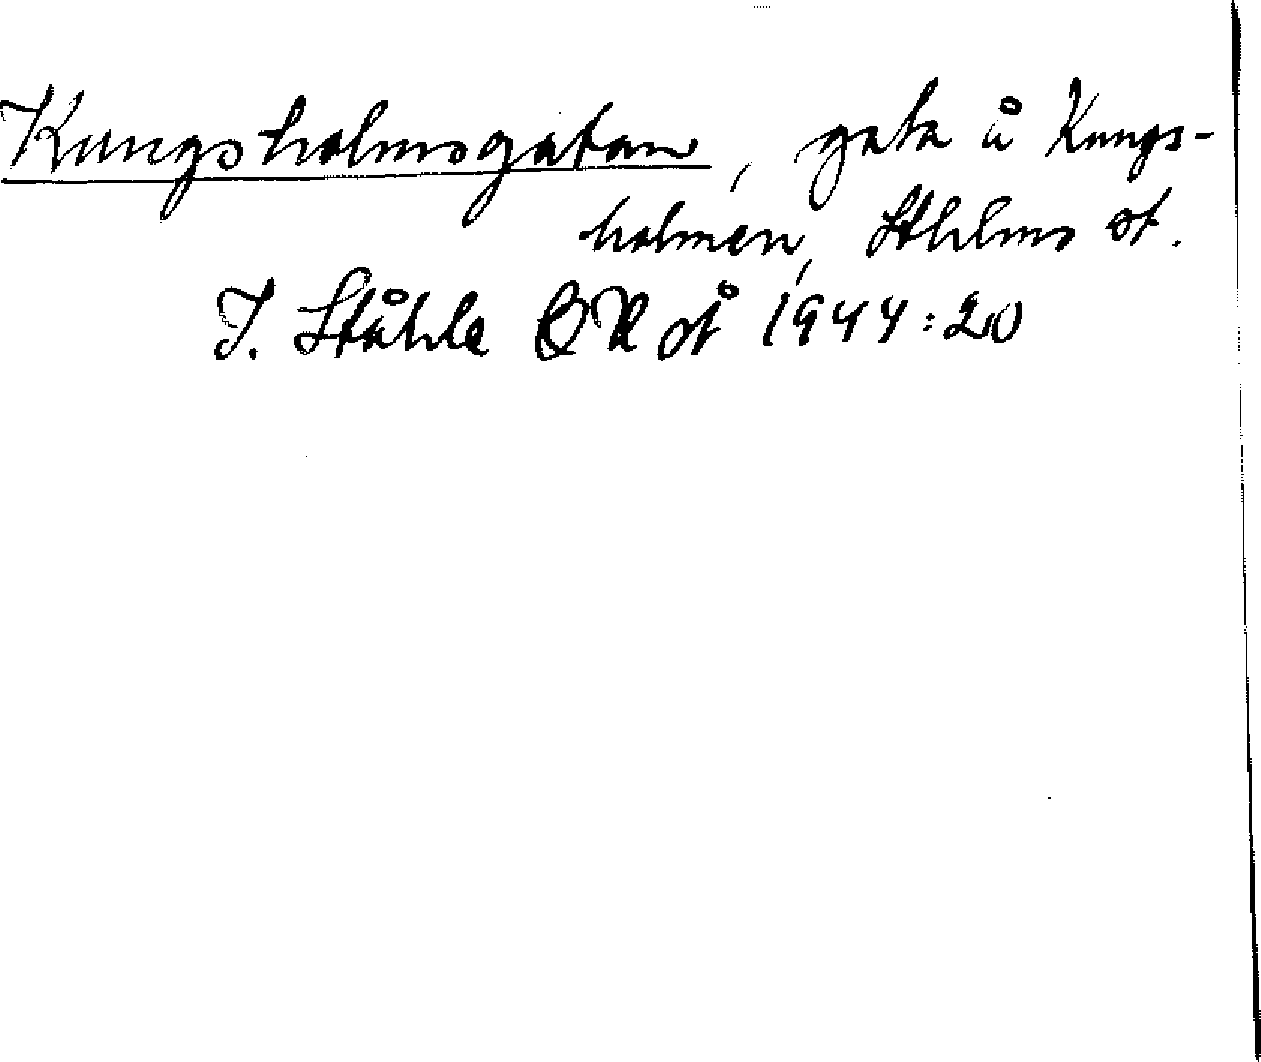 Kungsholmsgatan, gata å Kungs-
holmen, Sthlms st.
I. Ståhle 1944:20